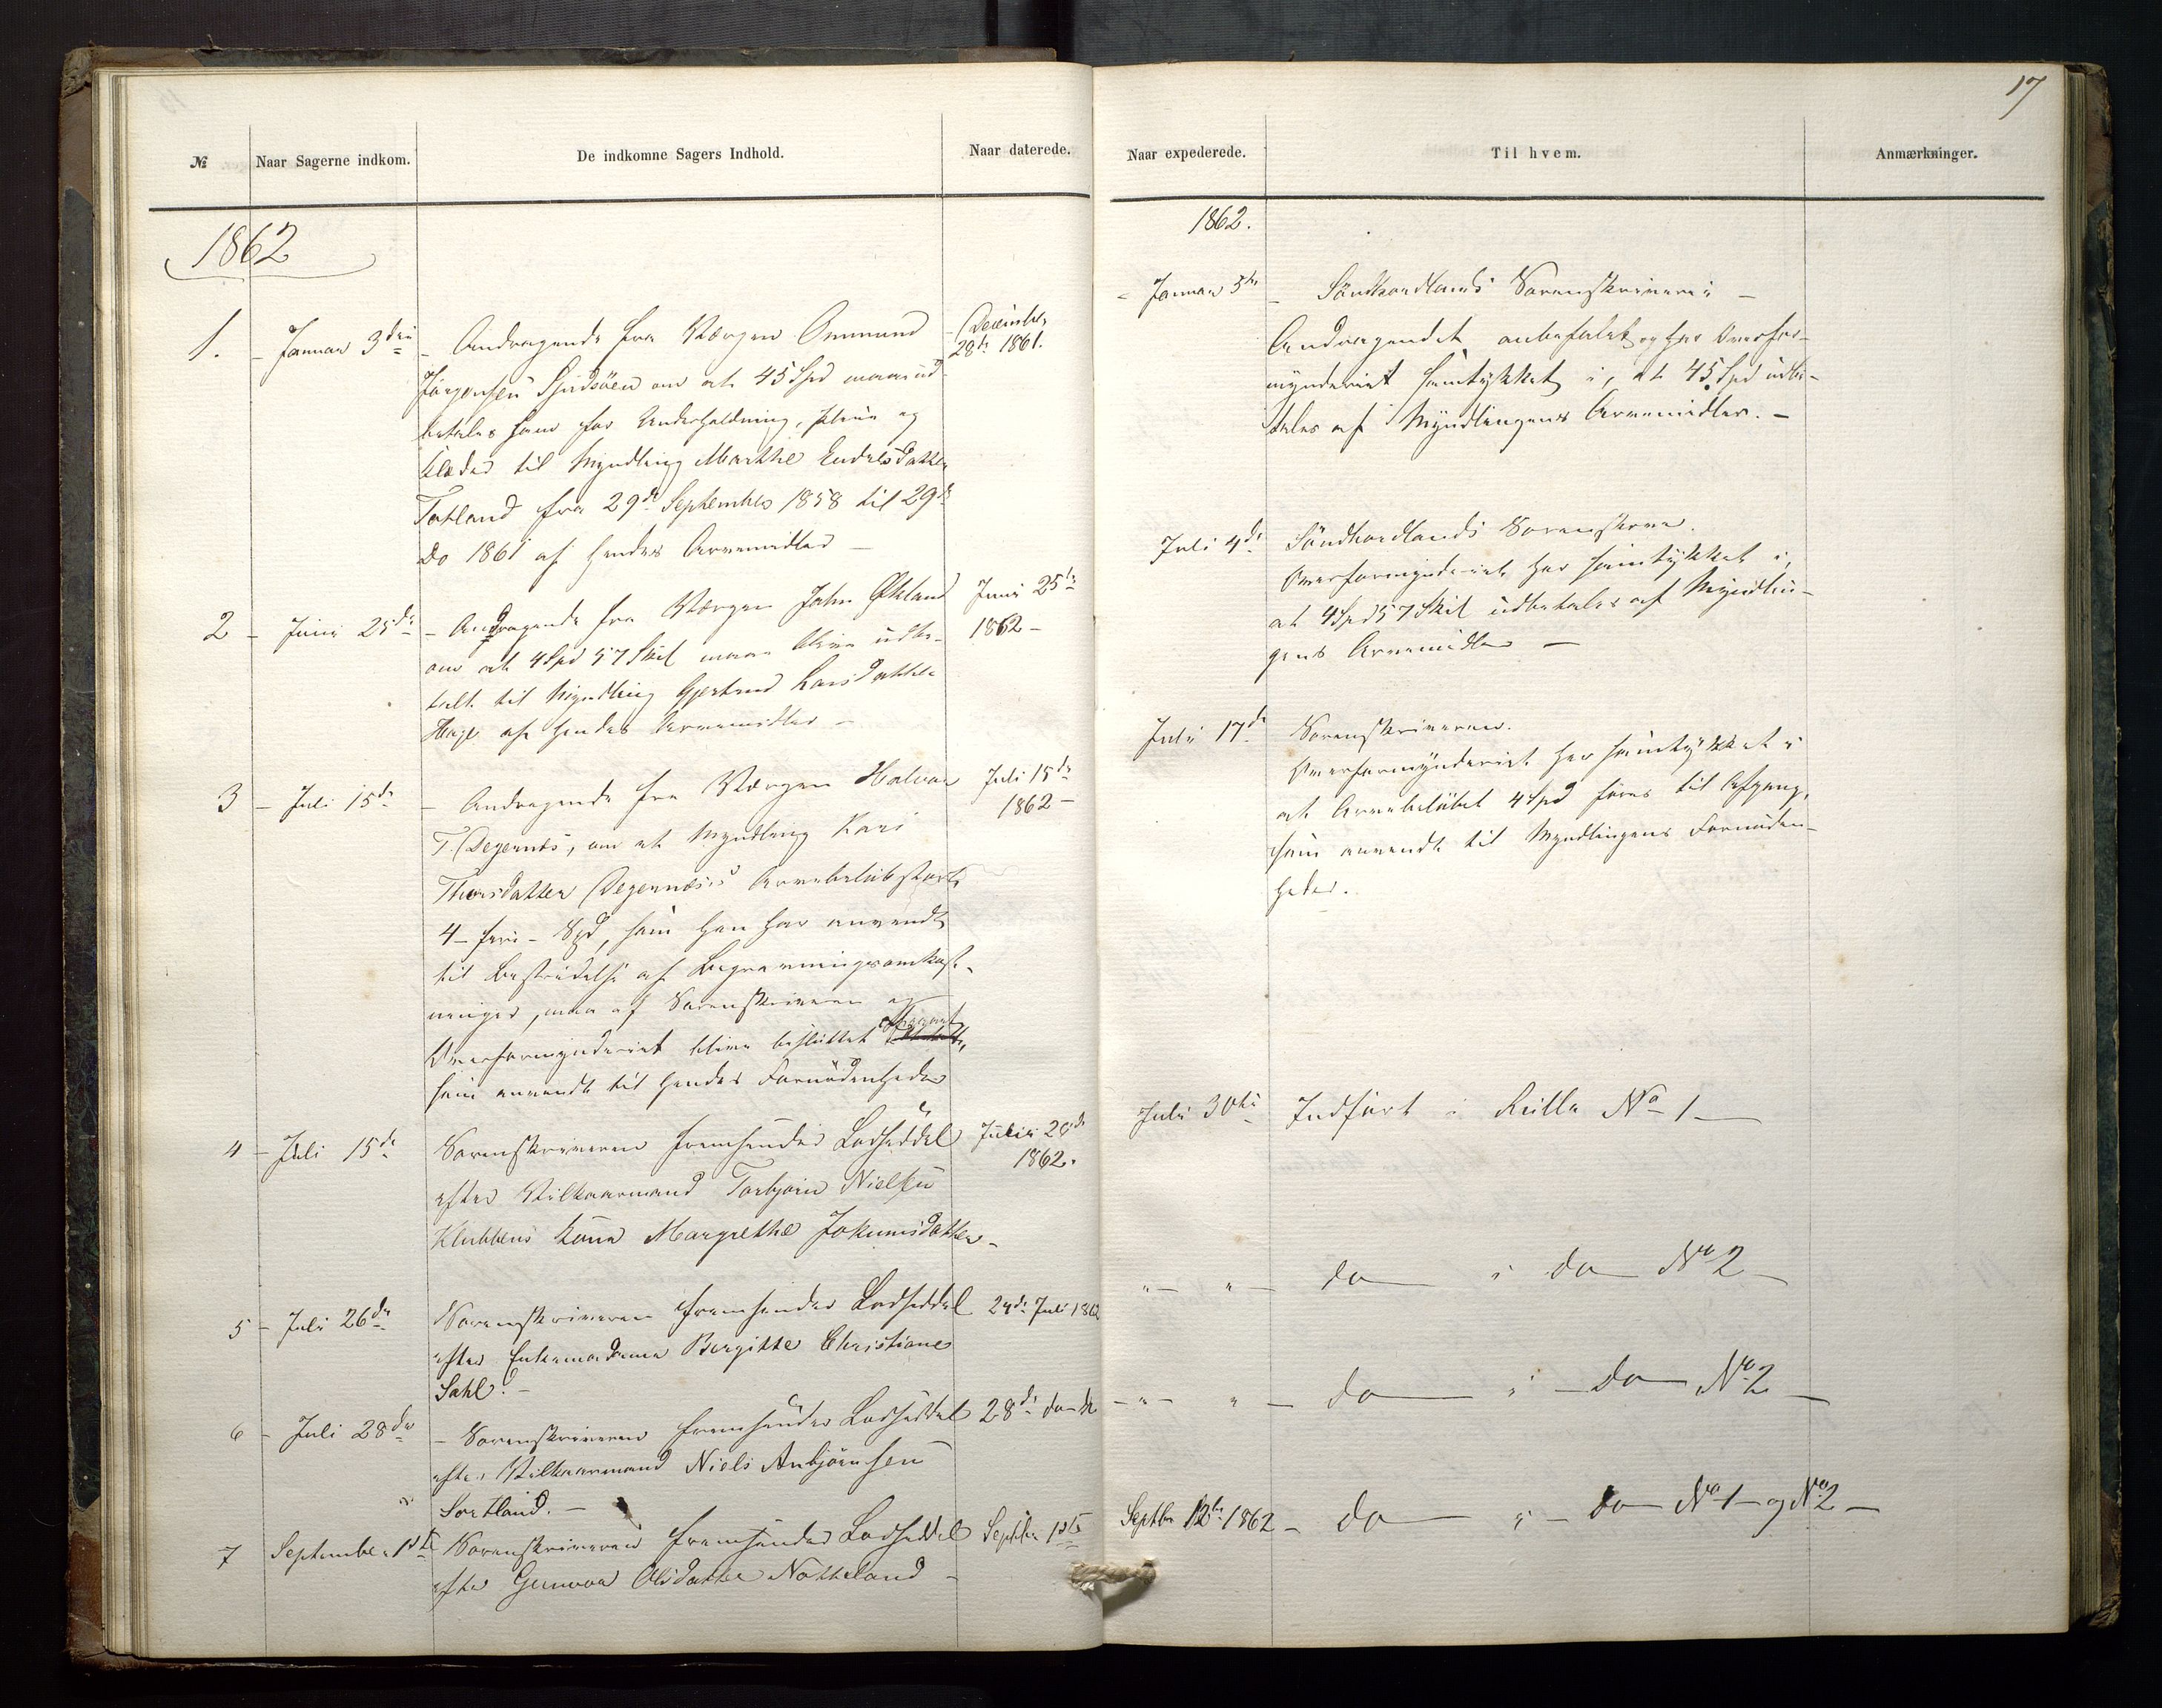 17
№ Naar Sagerne indkom. De indkomne Sagers Indhold. Naar daterede.
1862
1. – Januar 3die – Andragende fra Værgen Ommund – December 28de 1861.
Jørgensen om at 45 Spd maa ud-
betales ham for Underholdning, Pleie og
Klæder til Myndling Marthe Endresdatter
Tatland fra 29de September 1858 til 29de
Do 1861 af hendes Arvemidler –
2 – Juni 25de – Andragende fra Værgen John Økland Juni 25de 1862 –
om at 4 Spd 57 Skil maa blive udbe-
talt til Myndling Gjertrud Larsdatter
Hage af hendes Arvemidler –
3 – Juli 15de – Andragende fra Værgen Halvor Juli 15de 1862 –
T. Degernæs, om at Myndling Kari
Thorsdatter Degernæs's Arvebeløb
4 – fire – Spd, som han har anvendt
til Bestridelse af Begravelsesomkost-
ninger, maa af Sorenskriveren og
Overformynderiet blive besluttet
som anvendt til hendes Fornødenheder
4 – Juli 15de Sorenskriveren fremsender Lodseddel 1862.
efter Vilkaarmand Torbjørn Nielsen
Klubbens Kone Margrethe Jokumsdatter –
5 – Juli 26de Sorenskriveren fremsender Lodseddel 24de Juli 1862
efter Enkemadame Bergitte Christiane
Sahl. –
6 – Juli 28de – Sorenskriveren fremsender Lodseddel 28de do do
efter Vilkaarmand Niels Anbjørnsen
Sortland. –
7 September 1ste Sorenskriveren fremsender Lodseddel Septbr 1ste
efter Gunvor Olsdatter Notteland –
Naar expederede. Til hvem. Anmærkninger.
1862.
– Januar 5te – Söndhordlands Sorenskriveri –
Andragendet anbefalet og har Overfor-
mynderiet samtykket i, at 45 Spd udbe-
tales af Myndlingens Arvemidler. –
Juli 4de Söndhordlands Sorenskriver.
Overformynderiet har samtykket i,
at 4 Spd 57 Skil udbetales af Myndlin-
gens Arvemidler –
Juli 17de Sorenskriveren.
Overformynderiet har samtykket i
at Arvebeløbet 4 Spd føres til Afgang,
som anvendt til Myndlingens Fornøden-
heder.
Juli 30te Indført i Rulle No 1 –
" – " – do – i do – No 2 –
– " – " – do – i – Do – No 2 –
Septbr 12te 1862 – do – i – do – No 1 – og No 2 –